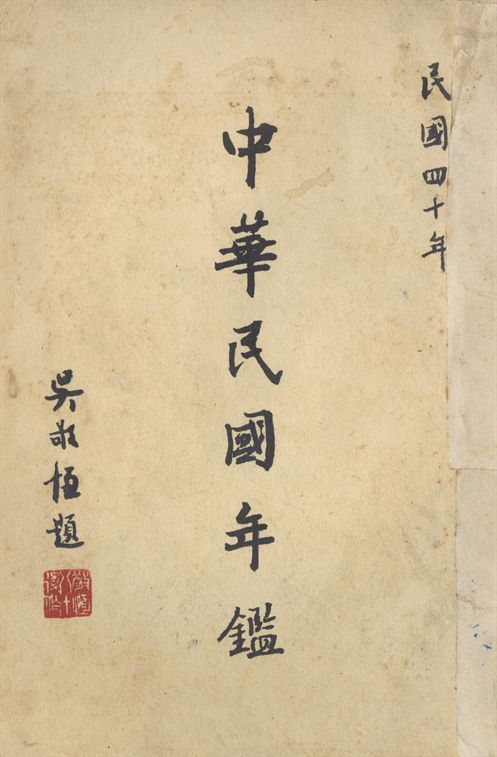 民國四十年
中華民國年鑑
吳敬恆題